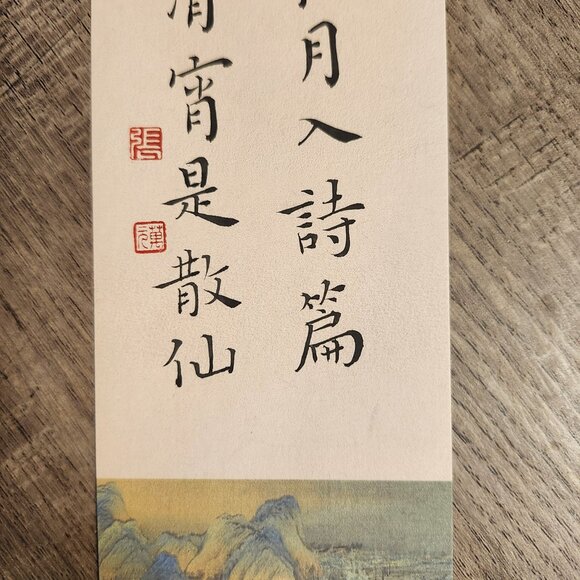 月入詩篇
宵是散仙
張